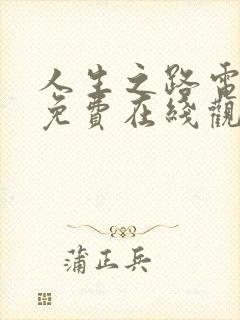 人生之路電
免費在綫觀
蒲正兵